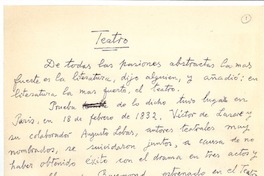 1
Teatro
De todas las pasiones abstractas la mas
fuerte es la literatura, dijo alguien, y añadió: en
literatura la mas fuerte, el teatro.
Prueba de lo dicho tuvo lugar en
París, en 18 de febrero de 1832. Victor de Lasere y
su colaborador Augusto Lobas, autores teatrales muy
nombrados, se suicidaron juntos, a causa de no
haber obtenido exito con el drama en tres actos y
estrenado en el Teatro